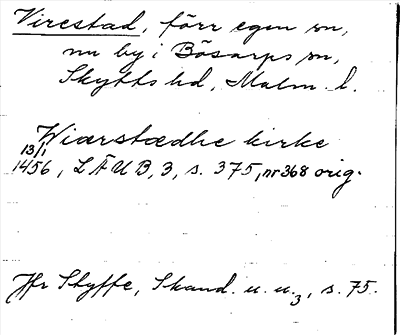 Virestad, förr egen sn,
nu by i Bösarps sn,
Skytts hd, Malm. l.
Wiærstædhe kirke
13/1
1456, LÄUB, 3, s. 375, nr 368 orig.
Jfr Styffe, Skand. u. u. 3, s. 75.